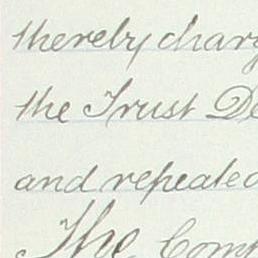 thereby charg
the Trust De
and repealed
The Comp